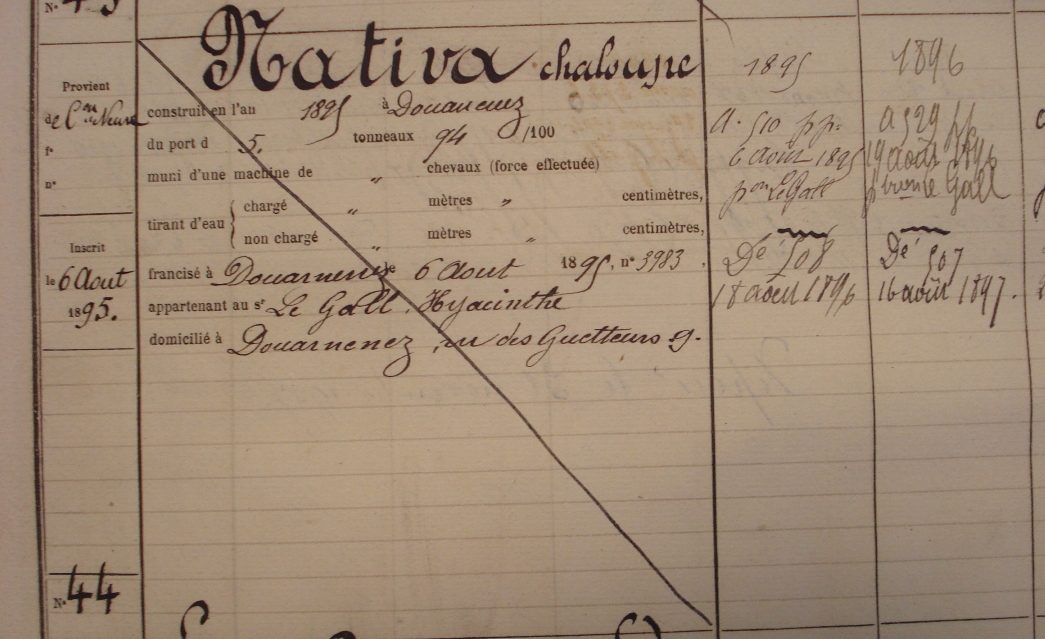 Nativa chaloupe
1895
1896
Provient
de Con Neuve
fo
no
construit en l'an 1895 à Douarnenez
du port d 5. tonneaux 94 /100
muni d'une machine de " chevaux (force effectuée)
tirant d'eau { chargé " mètres " centimètres,
non chargé " mètres " centimètres,
Inscrit
le 6 Août
1895.
francisé à Douarnenez le 6 Août 1895, no 3983,
appartenant au sr Le Gall, Hyacinthe
domicilié à Douarnenez, rue des Guetteurs 9.
A. 510 pp.
6 août 1895
pon Le Gall
Dé 508
18 août 1896
A 529 pp
19 août 1896
Le Gall
Dé 507
16 août 1897.
No 44